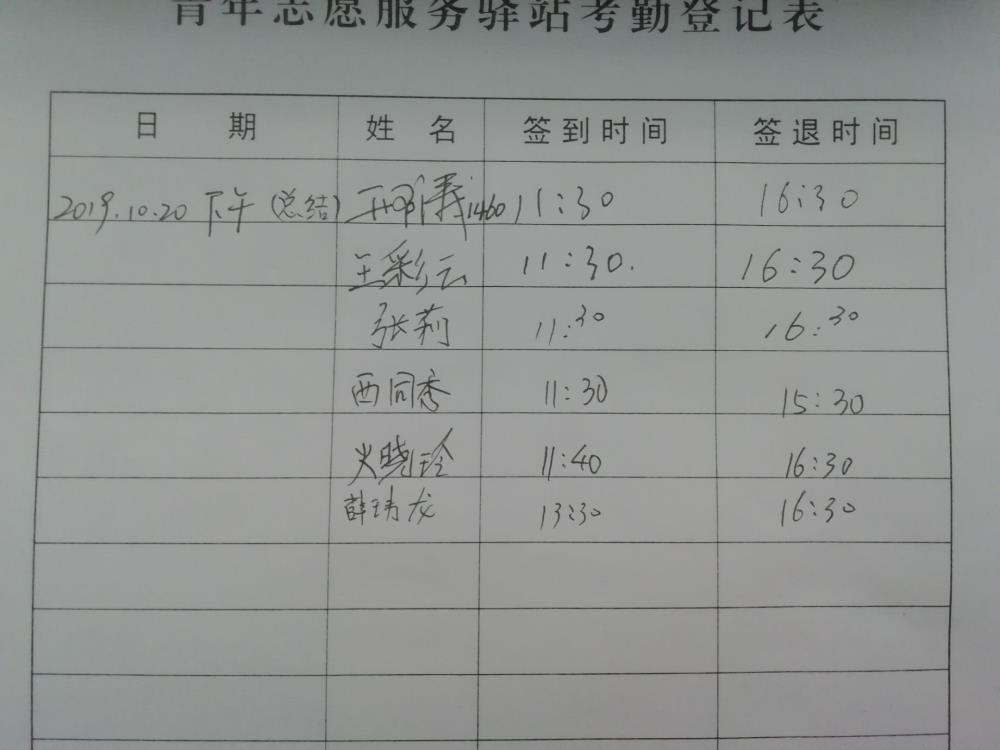 青年志愿服务驿站考勤登记表
日 期 姓 名 签到时间 签退时间
2019.10.20 下午 (总结) 1460 11:30 16:30
王彩云 11:30. 16:30
张莉 11:30 16:30
西同秀 11:30 15:30
火晓玲 11:40 16:30
薛玮龙 13:30 16:30